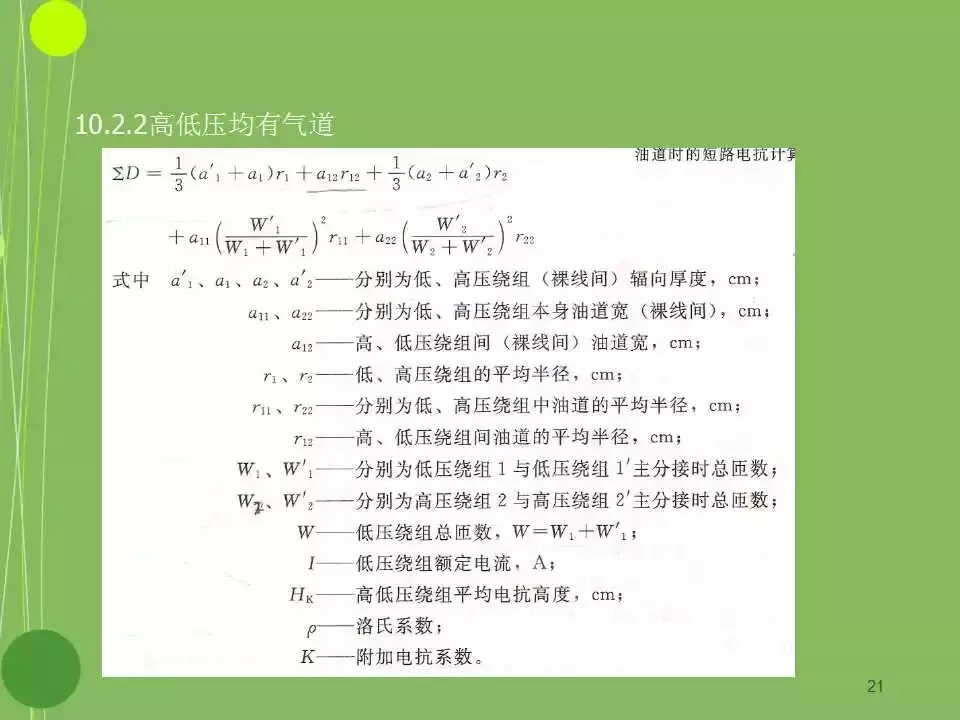 10.2.2高低压均有气道
油道时的短路电抗计算
ΣD = 1/3(a′₁ + a₁)r₁ + a₁₂r₁₂ + 1/3(a₂ + a′₂)r₂
+ a₁₁(W′₁/(W₁ + W′₁))² r₁₁ + a₂₂(W′₂/(W₂ + W′₂))² r₂₂
式中 a′₁、a₁、a₂、a′₂——分别为低、高压绕组（裸线间）辐向厚度，cm；
a₁₁、a₂₂——分别为低、高压绕组本身油道宽（裸线间），cm；
a₁₂——高、低压绕组间（裸线间）油道宽，cm；
r₁、r₂——低、高压绕组的平均半径，cm；
r₁₁、r₂₂——分别为低、高压绕组中油道的平均半径，cm；
r₁₂——高、低压绕组间油道的平均半径，cm；
W₁、W′₁——分别为低压绕组1与低压绕组1′主分接时总匝数；
W₂、W′₂——分别为高压绕组2与高压绕组2′主分接时总匝数；
W——低压绕组总匝数，W＝W₁+W′₁；
I——低压绕组额定电流，A；
H_K——高低压绕组平均电抗高度，cm；
ρ——洛氏系数；
K——附加电抗系数。
21